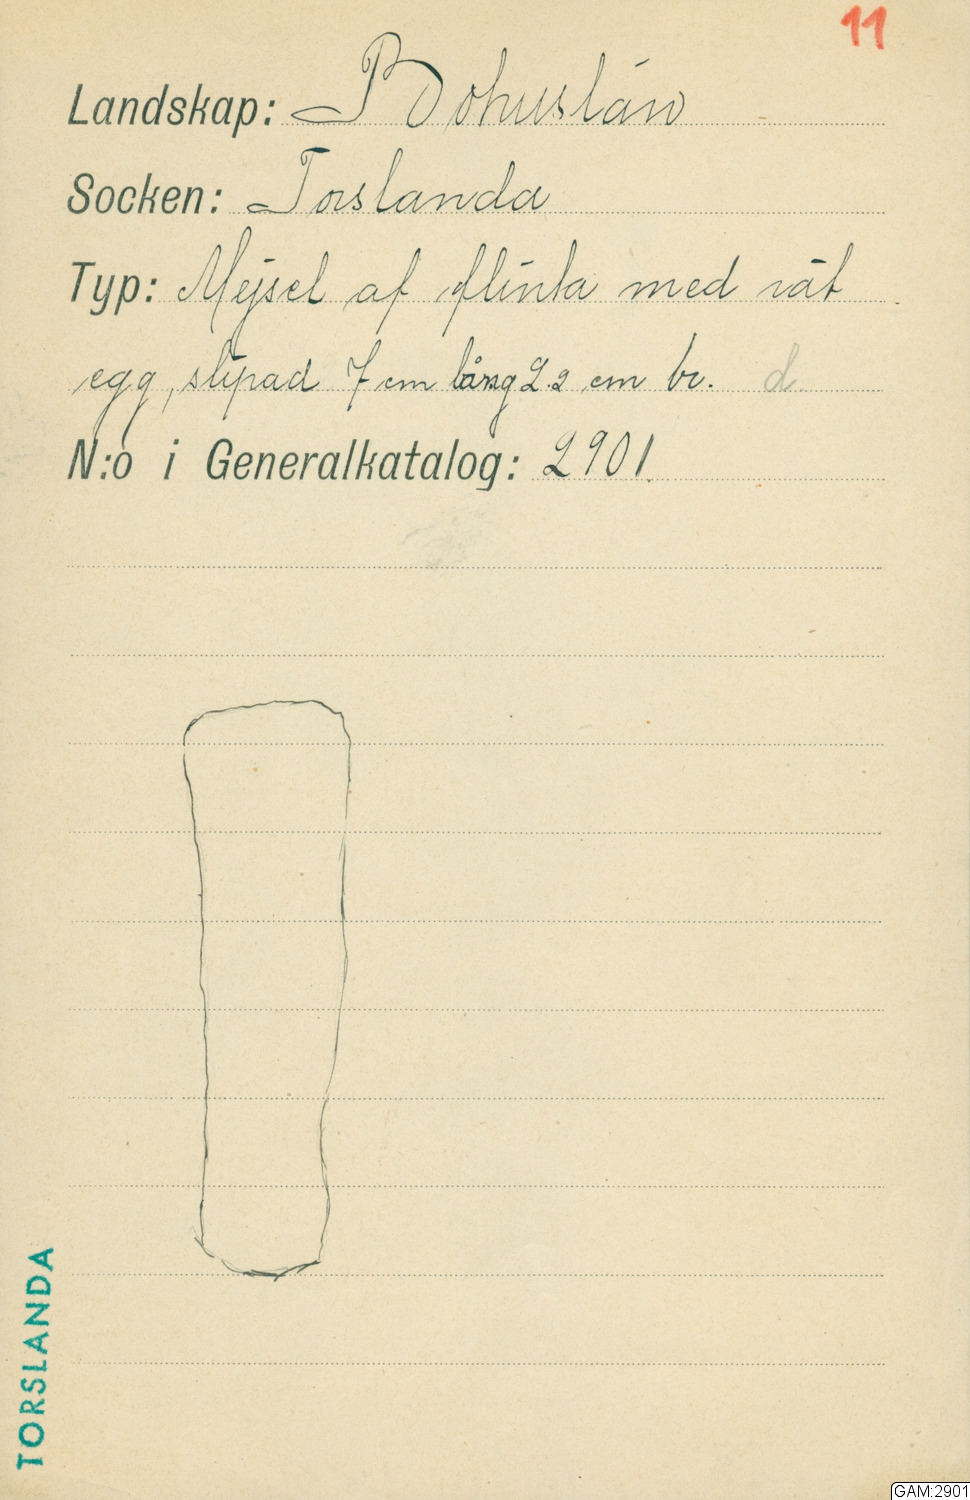 11
Landskap: Bohuslän
Socken: Torslanda
Typ: Mejsel af flinta med rät
egg, slipad 7 cm lång 2.2 cm br. d
N:o i Generalkatalog: 2901.
TORSLANDA
GAM:2901